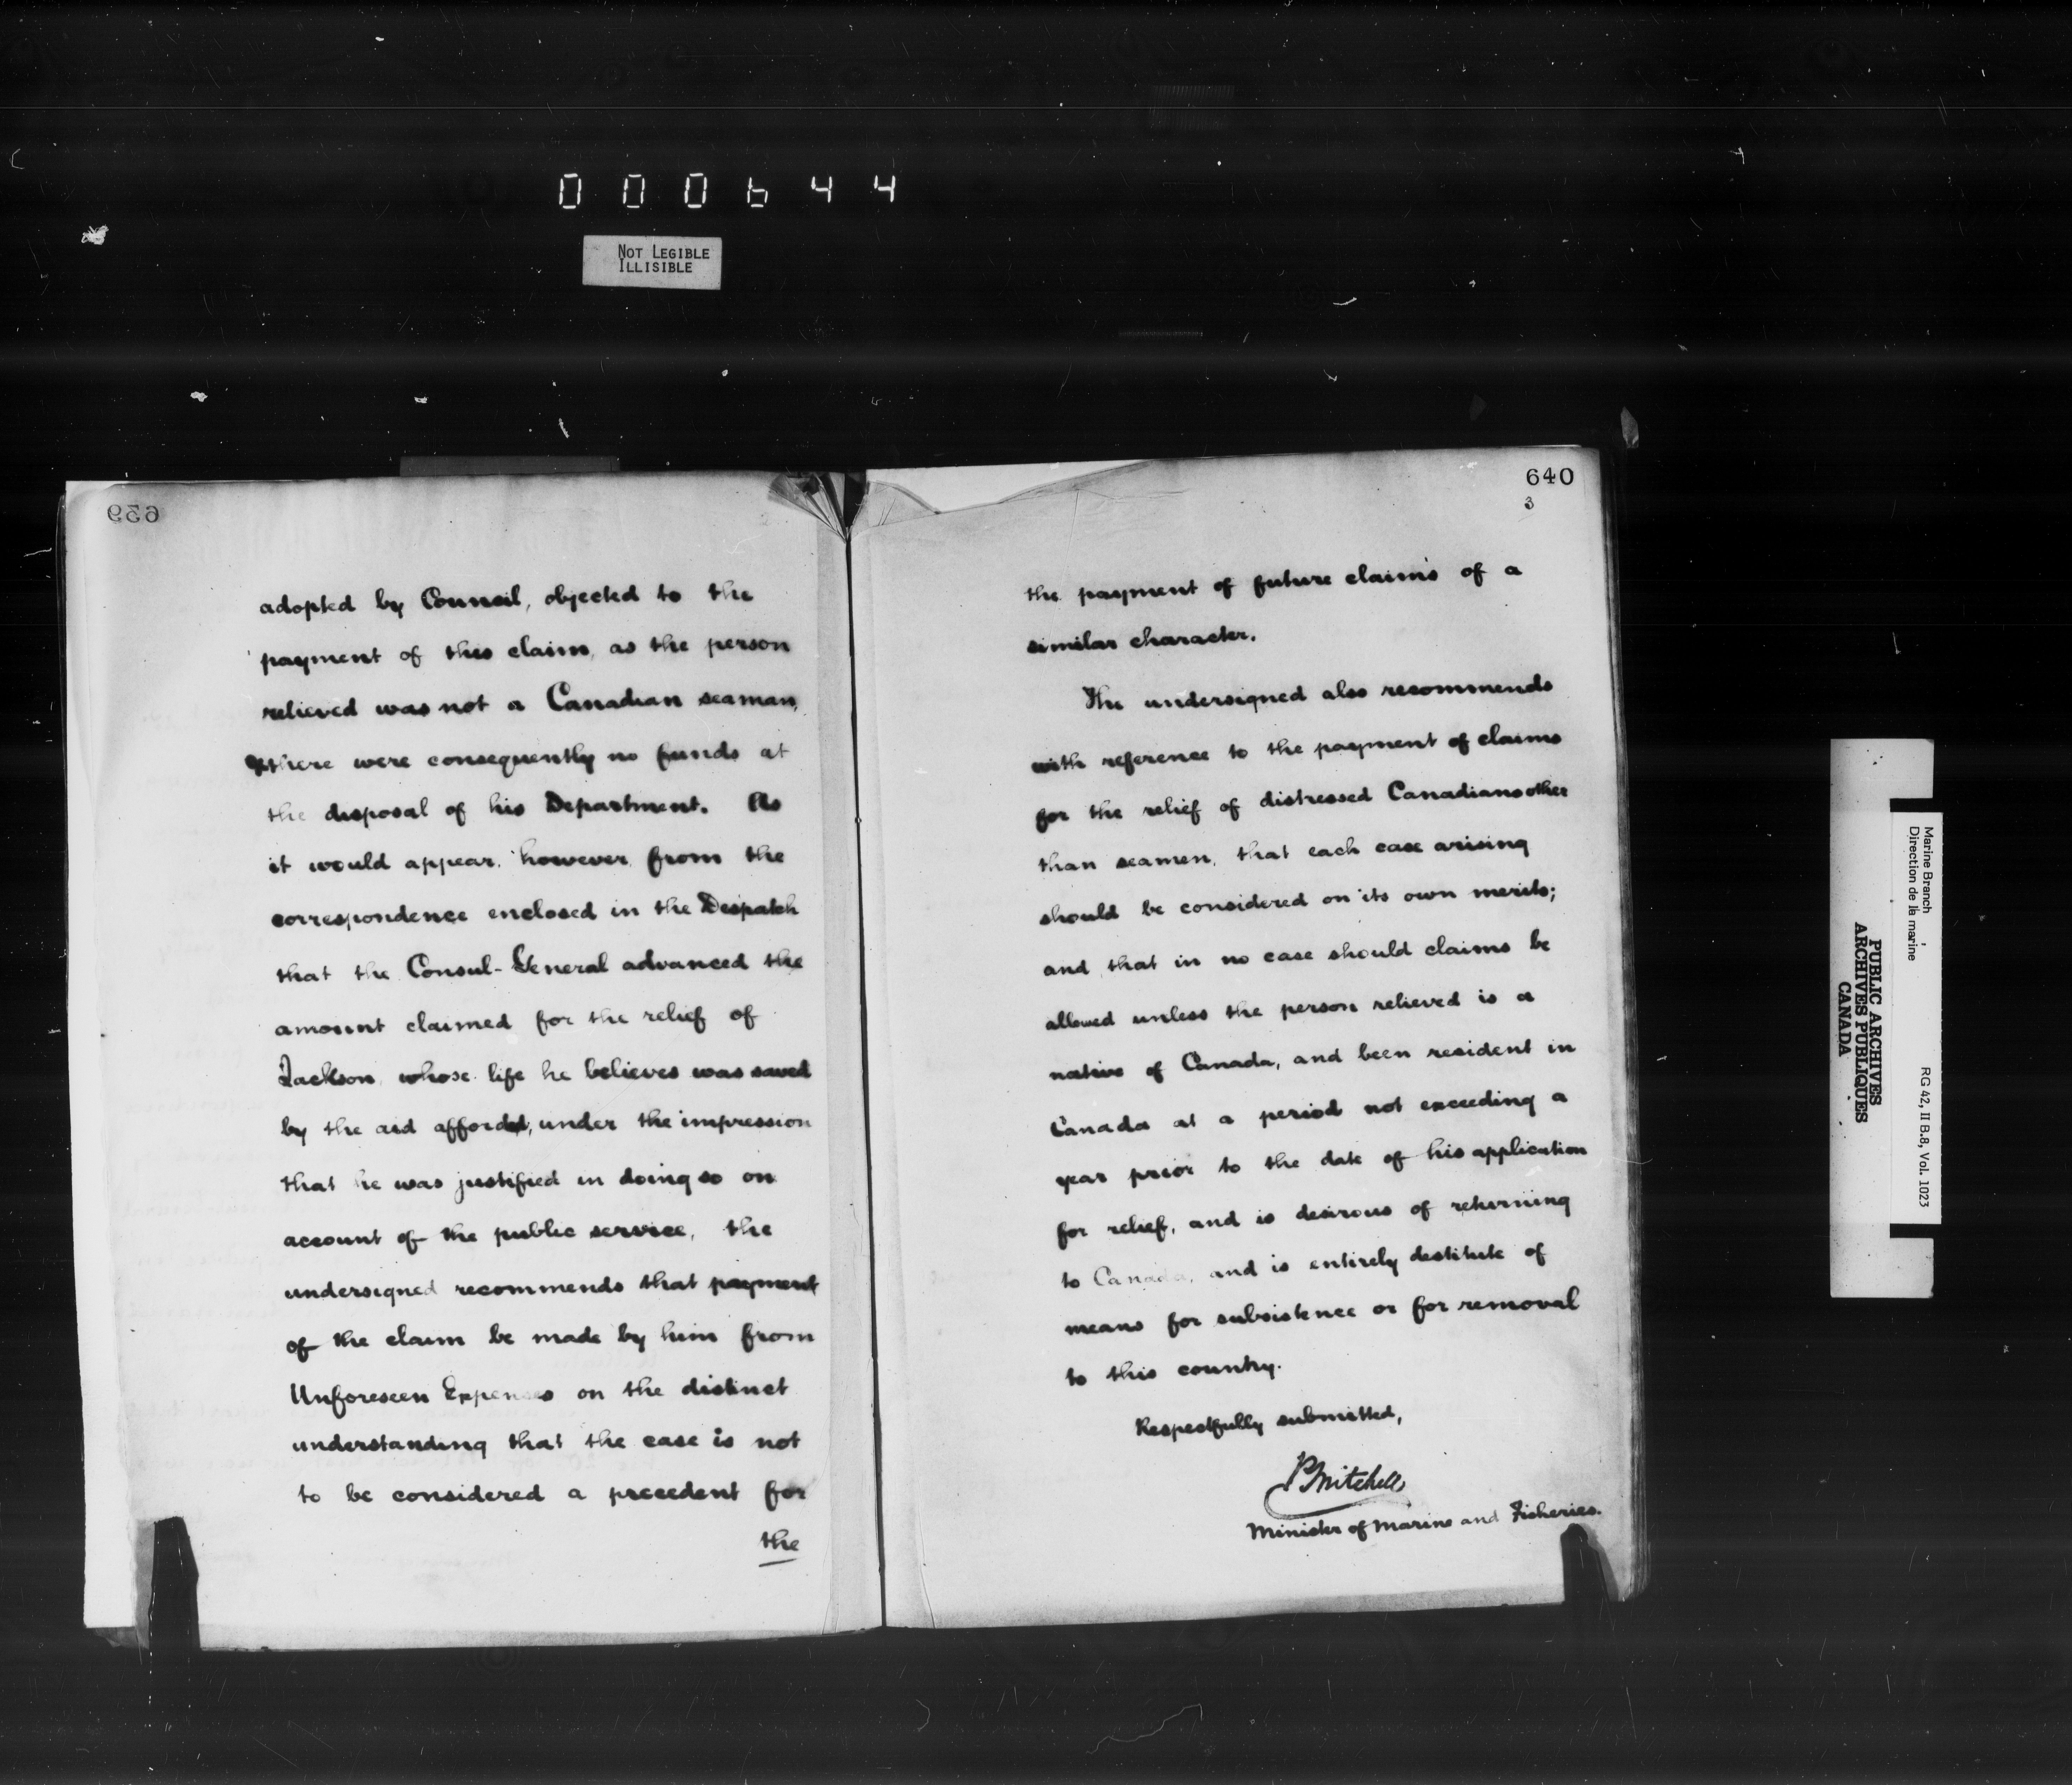 000644
NOT LEGIBLE
ILLISIBLE
639
adopted by Council, objected to the
payment of this claim, as the person
relieved was not a Canadian seaman,
& there were consequently no funds at
the disposal of his Department. As
it would appear, however, from the
correspondence enclosed in the Despatch
that the Consul-General advanced the
amount claimed for the relief of
Jackson, whose life he believes was saved
by the aid afforded, under the impression
that he was justified in doing so on
account of the public service, the
undersigned recommends that payment
of the claim be made by him from
Unforeseen Expenses on the distinct
understanding that the case is not
to be considered a precedent for
the
640
3
the payment of future claims of a
similar character.
The undersigned also recommends
with reference to the payment of claims
for the relief of distressed Canadians other
than seamen, that each case arising
should be considered on its own merits;
and that in no case should claims be
allowed unless the person relieved is a
native of Canada, and been resident in
Canada at a period not exceeding a
year prior to the date of his application
for relief, and is desirous of returning
to Canada, and is entirely destitute of
means for subsistence or for removal
to this country.
Respectfully submitted,
P Mitchell
Minister of Marine and Fisheries.
Marine Branch
Direction de la marine
RG 42, II B.8, Vol. 1023
PUBLIC ARCHIVES
ARCHIVES PUBLIQUES
CANADA